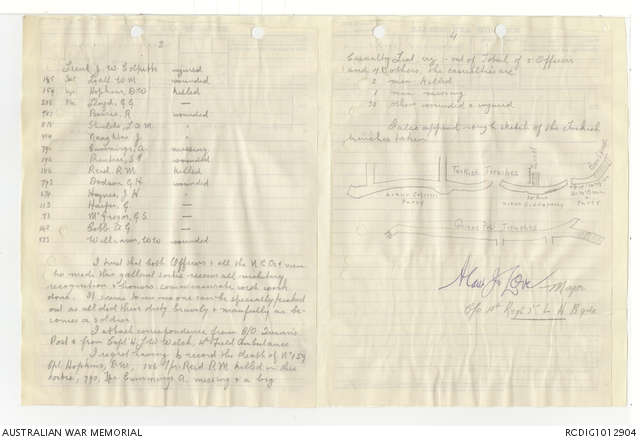 3
Lieut J. W. Colpitts injured
185 Sgt Lyall W M wounded
159 Cpl Hopkins, D W killed
Lloyd, G G —
Barrie, R wounded
Shields, L A M "
Naughton J "
790 Cummings, A missing
Prentice, S F wounded
186 Reid, R. M. killed
793 Dodson G H wounded
Haynes, J H "
113 Harper G —
McGregor, G S —
Cobb D G —
Williams, W W wounded
I trust that both Officers & all the N.C.Os & men
who made this gallant sortie receive all military
recognition & honours commensurate with work
done. It seems to me no one can be specially picked
out as all did their duty bravely & manfully as be-
comes a soldier.
I attach correspondence from O/C Quinn's
Post & from Capt H. J. W. Welch, 1st Field Ambulance
I regret having to record the death of No 159
Cpl Hopkins, D W, 186 Tpr Reid R M killed in this
sortie, 790, Tpr Cummings A. missing & a big
4
Casualty List viz :- out of Total of 2 Officers
and others, the casualties are
2 men killed
1 man missing
others wounded & injured
I also append rough sketch of the Turkish
trenches taken
Turkish Trenches
Party
Party
Quinns Post Trenches
Major
C/O 1st Regt L H Bgde
AUSTRALIAN WAR MEMORIAL
RCDIG1012904